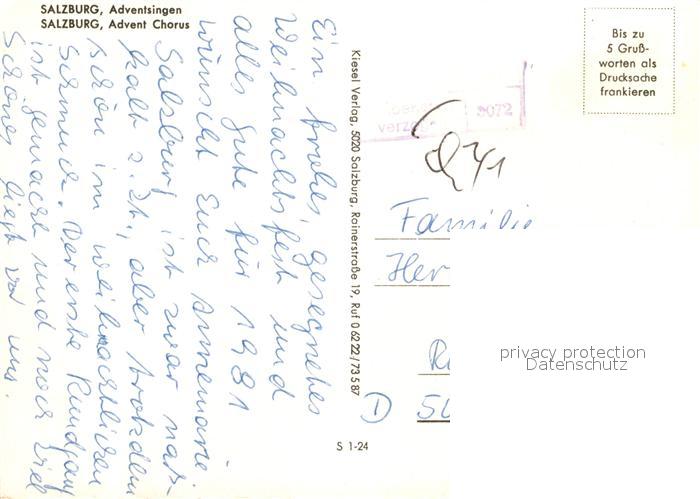 SALZBURG, Adventsingen
SALZBURG, Advent Chorus
Ein frohes, gesegnetes
Weihnachtsfest und
alles gute für 1981
wünscht Euch Annemarie.
Salzburg ist zwar naß-
kalt z.Zt., aber trotzdem
schön im weihnachtlichen
Schmuck. Der erste Rundgang
ist gemacht und noch viel
Schönes liegt vor uns.
Kiesel Verlag, 5020 Salzburg, Rainerstraße 19, Ruf 0 62 22 / 73 5 87
Bis zu
5 Gruß-
worten als
Drucksache
frankieren
5072
Familie
Her
D 5
S 1-24
privacy protection
Datenschutz